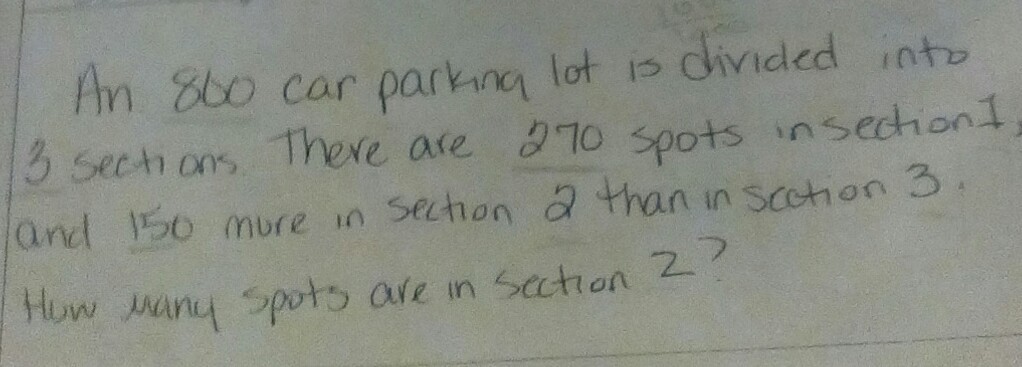 An 860 car parking lot is divided into
3 sections. There are 270 spots in section 1,
and 150 more in section 2 than in scction 3.
How many spots are in section 2?